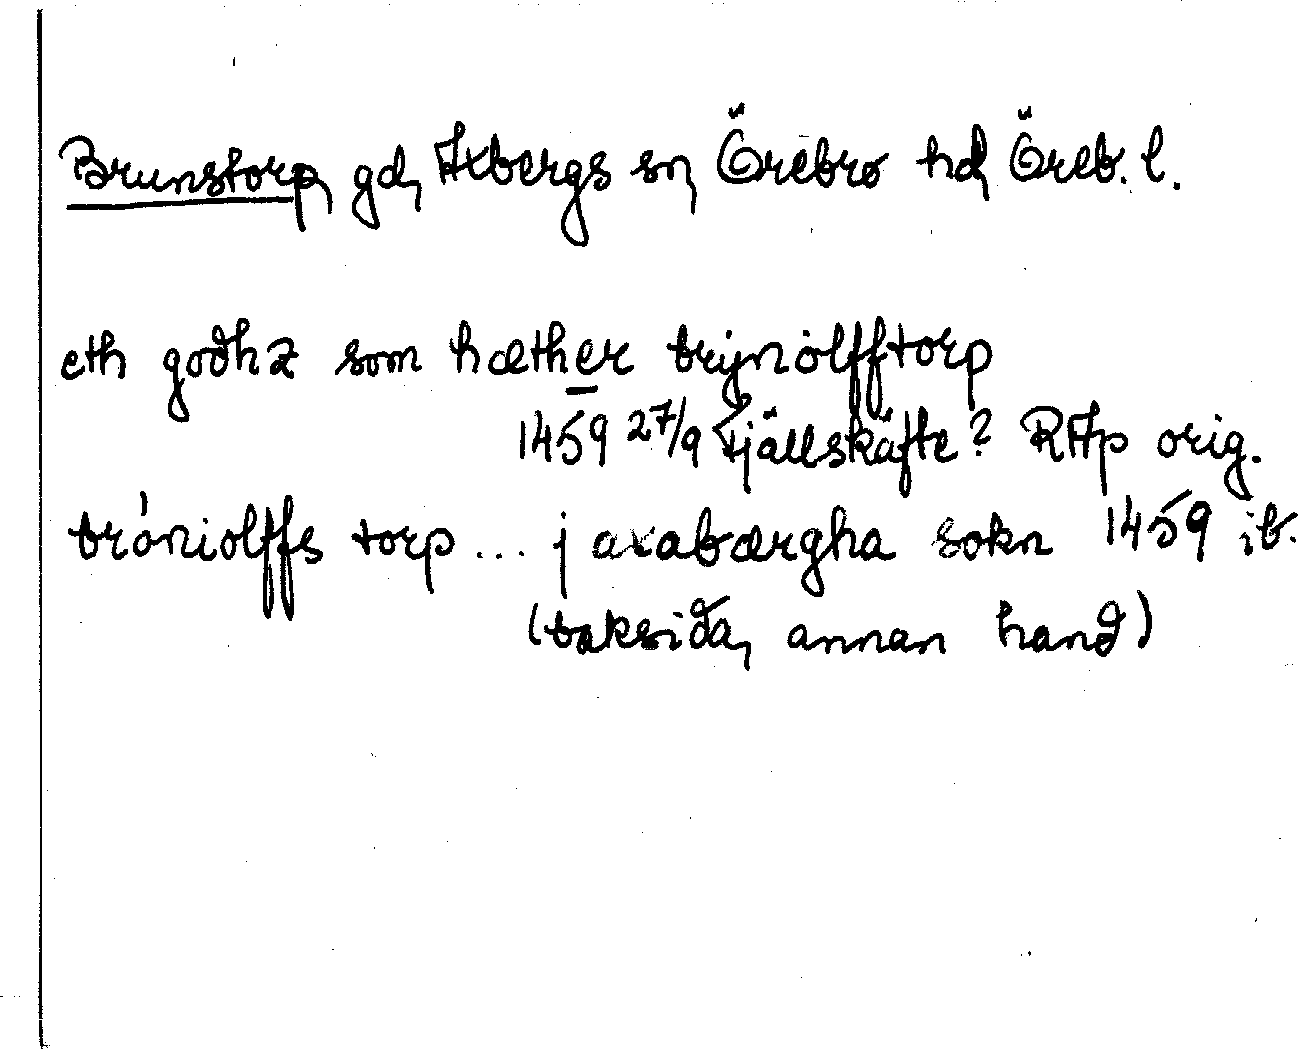 Brunstorp, gd, Axbergs sn, Örebro hd, Öreb. l.
eth godhz som hæther brynolfftorp
1459 27/9 Fjällskäfte? RAp orig.
bróniolffs torp ... j axabærgha sokn 1459 ib.
(baksida, annan hand)